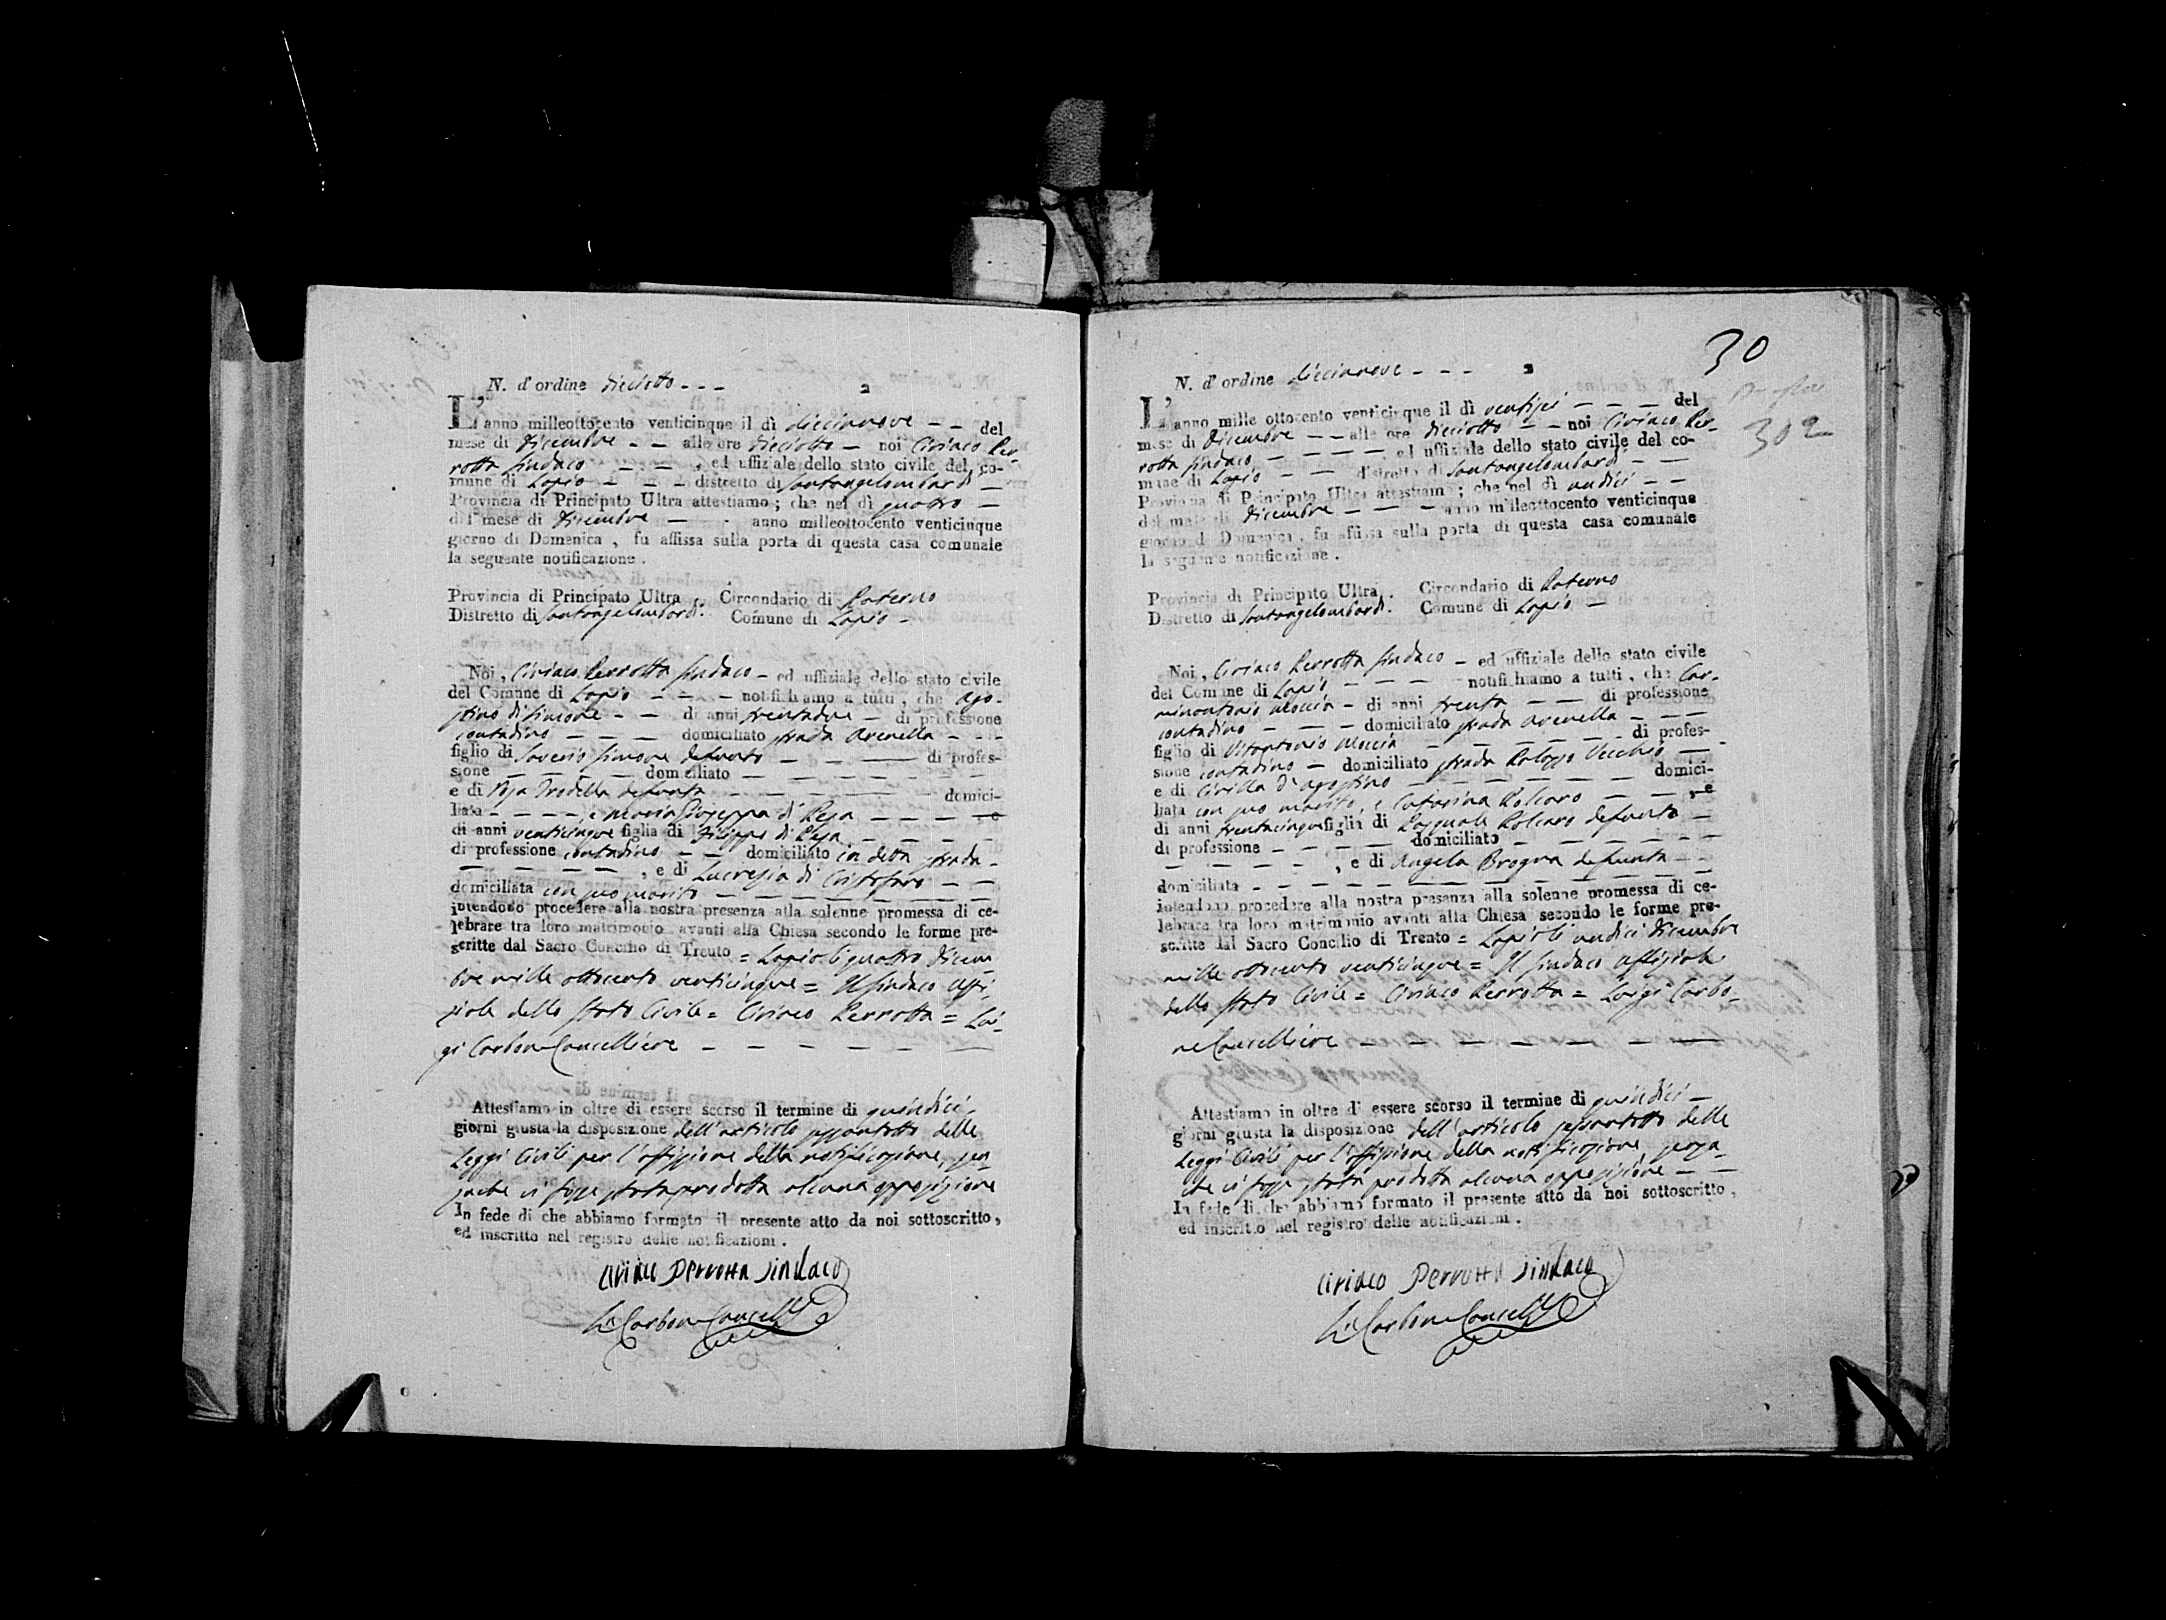 N. d'ordine dieciotto - - - 2
L'anno milleottocento venticinque il dì diecinnove - - del
mese di Dicembre - - alle ore dieciotto - noi Ciriaco Per-
rotta Sindaco - - - , ed uffiziale dello stato civile del co-
mune di Lapio - - - distretto di Santangelombardi -
Provincia di Principato Ultra attestiamo ; che nel dì quattro -
del mese di Dicembre - - anno milleottocento venticinque
giorno di Domenica , fu affissa sulla porta di questa casa comunale
la seguente notificazione .
Provincia di Principato Ultra . Circondario di Paterno
Distretto di Santangelombardi . Comune di Lapio -
Noi , Ciriaco Perrotta Sindaco - ed uffiziale dello stato civile
del Comune di Lapio - - - notifichiamo a tutti , che Ago-
stino di Simone - - di anni trentadue - di professione
contadino - - - domiciliato strada Arenella - - -
figlio di Saverio Simone defunto - - - di profes-
sione - - - - domiciliato - - - - -
e di Trodella defunta - - - - - domici-
liata - - - - , e Maria Giuseppa di Resa - - - - e
di anni venticinque figlia di Filippo di Resa - - - -
di professione contadino - - domiciliato in detta strada -
- - - - - , e di Lucrezia di Cristofaro - -
domiciliata con suo marito - - - - - -
intendono procedere alla nostra presenza alla solenne promessa di ce-
lebrare tra loro matrimonio avanti alla Chiesa secondo le forme pre-
scritte dal Sacro Concilio di Trento = Lapio li quattro Dicem
bre mille ottocento venticinque = Il Sindaco Uffi-
ziale dello Stato Civile = Ciriaco Perrotta = Lui-
gi Carbone Cancelliere - - - - - -
Attestiamo in oltre di essere scorso il termine di quindici -
giorni giusta la disposizione dell'articolo sessantotto delle
Leggi Civili per l'affissione della notificazione, sen
zache vi fosse stata prodotta alcuna opposizione
In fede di che abbiamo formato il presente atto da noi sottoscritto ,
ed inscritto nel registro delle notificazioni .
Ciriaco Perrotta Sindaco
L. Carbone Cancell
30
302
N. d'ordine diecinnove - - - 2
L'anno mille ottocento venticinque il dì ventisei - - - del
mese di Dicembre - - alle ore dieciotto - - noi Ciriaco Per-
rotta Sindaco - - - - , ed uffiziale dello stato civile del co-
mune di Lapio - - distretto di Santangelombardi - -
Provincia di Principato Ultra attestiamo ; che nel dì undici - -
del mese di Dicembre - - - anno milleottocento venticinque
giorno di Domenica , fu affissa sulla porta di questa casa comunale
la seguente notificazione .
Provincia di Principato Ultra . Circondario di Paterno
Distretto di Santangelombardi . Comune di Lapio -
Noi , Ciriaco Perrotta Sindaco - ed uffiziale dello stato civile
del Comune di Lapio - - - - notifichiamo a tutti , che Car-
minantonio Moccia - di anni trenta - - di professione
contadino - - - domiciliato strada Arenella - - -
figlio di Vitantonio Moccia - - - - - di profes-
sione contadino - domiciliato strada Palazzo Vecchio - -
e di Civilla d'Agostino - - - - - domici-
liata con suo marito, e Catarina Polcaro - - - , e
di anni trentacinque figlia di Pasquale Polcaro defunto -
di professione - - - - domiciliato - - - - -
- - - - , e di Angela Brogna defunta - -
domiciliata - - - - - - - -
intendono procedere alla nostra presenza alla solenne promessa di ce-
lebrare tra loro matrimonio avanti alla Chiesa secondo le forme pre-
scritte dal Sacro Concilio di Trento = Lapio li undici Dicembre
mille ottocento venticinque = Il Sindaco Uffiziale
dello Stato Civile = Ciriaco Perrotta = Luigi Carbo-
ne Cancelliere - - - - - -
Attestiamo in oltre di essere scorso il termine di quindici -
giorni giusta la disposizione dell'articolo sessantotto delle
Leggi Civili per l'affissione della notificazione, senza-
che vi fosse stata prodotta alcuna opposizione - -
In fede di che abbiamo formato il presente atto da noi sottoscritto ,
ed inscritto nel registro delle notificazioni .
Ciriaco Perrotta Sindaco
L. Carbone Cancell